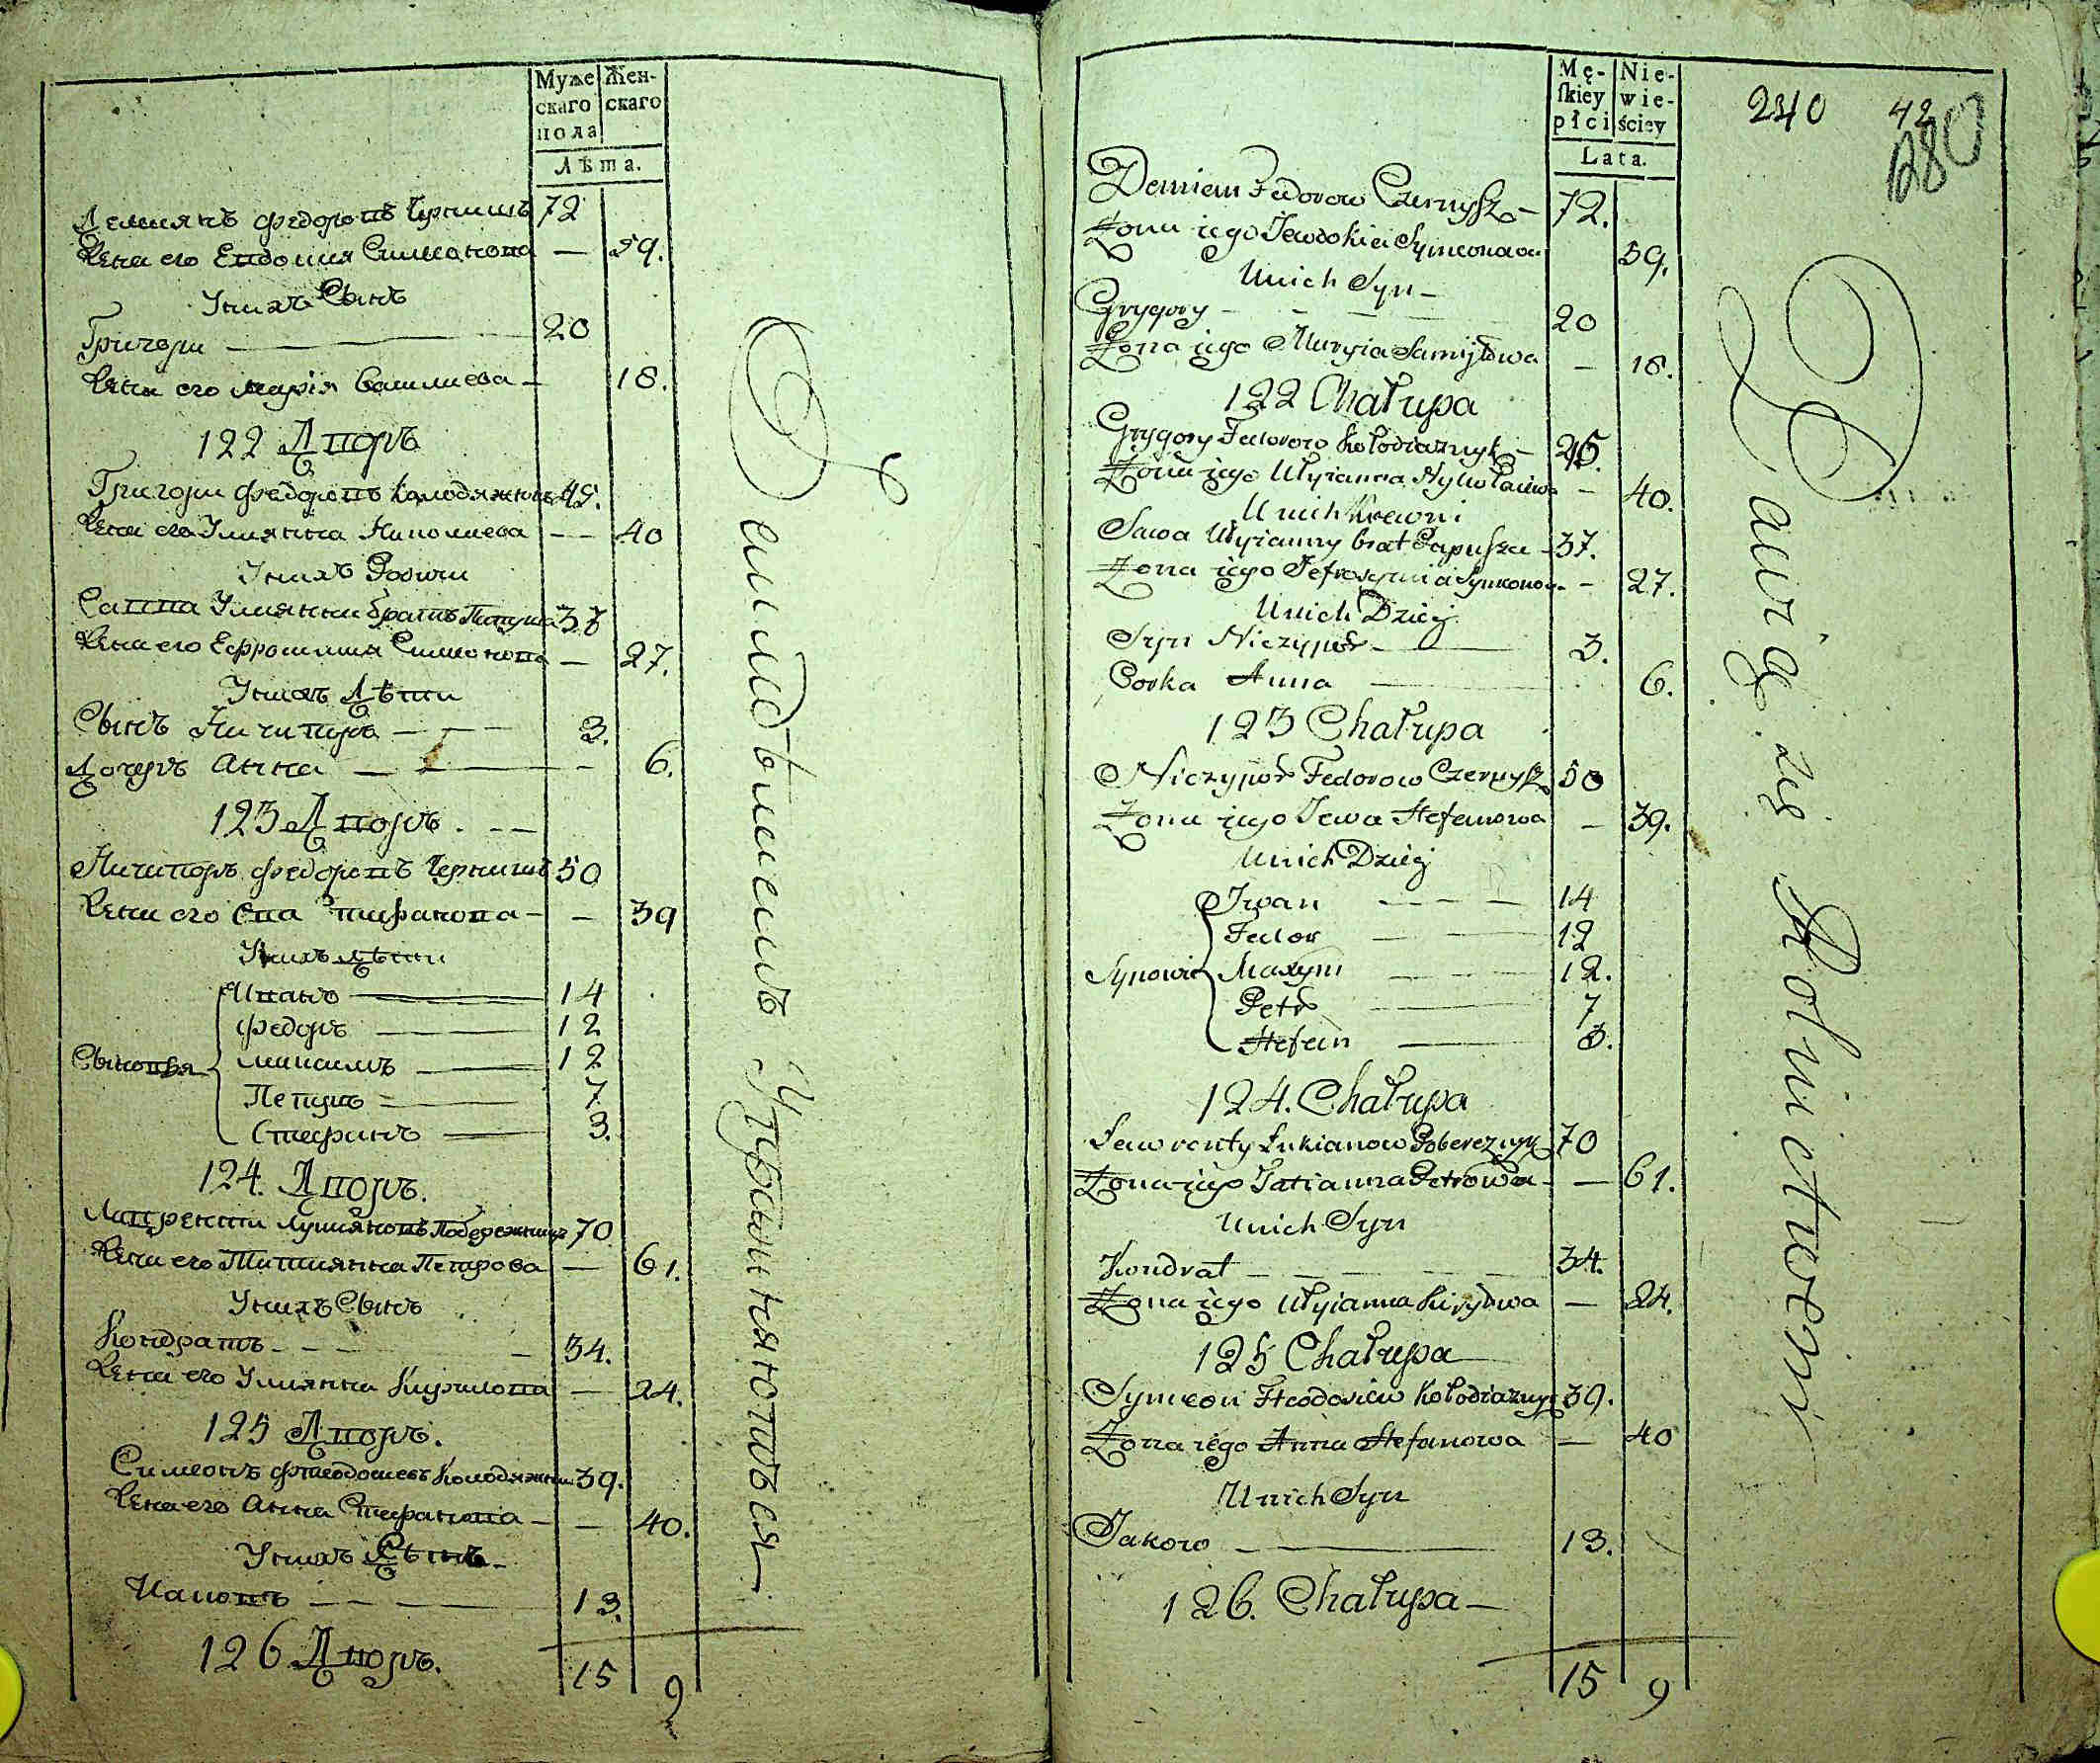 Муже Жен-
скаго скаго
пола
Лѣта.
Демиянъ Федоровъ Чернишъ 72
Жена его Евдокия Симионова — 59.
У нихъ Сынъ
Григори — 20
Жена его Марія Самилева — 18.
122 Дворъ
Григори Федоровъ Колодяжнык 45.
Жена его Улиянна Николаева — — 40
У нихъ Родичи
Савва Улиянни братъ Папуша 37
Жена его Ефросиния Симионова — 27.
У нихъ Дѣти
Сынъ Ничипоръ — — — 3.
Дочеръ Анна — — — 6.
123 Дворъ. - —
Ничипоръ Федоровъ Чернишъ 50
Жена его Ева Стифанова — — 39
У нихъ Дѣти
Иванъ — 14
Федоръ — 12
Сыновья Максимъ — 12
Петръ — 7
Стефанъ — 3.
124. Дворъ.
Лаврентии Лукияновъ Побережник 70
Жена его Татиянна Петрова — 61.
У нихъ Сынъ
Кондратъ - — — — 34.
Жена его Улиянна Кирилова — 24.
125 Дворъ.
Симеонъ Фтеодосиевъ Колодяжны 39.
Жена его Анна Стефанова — — 40.
У нихъ Сынъ —
Иаковъ — — — 13.
126 Дворъ.
15 9
Занимаются Хлѣбопашествомъ
Mę- Nie-
ſkiey wie-
płci ściey
Lata.
240 42
280
Demian Fedorow Czernysz — 72.
Żona iego Jewdokiia Symeonowa 59.
U nich Syn —
Grygory — — — 20
Żona iego Maryia Samiyłowa — 18.
122 Chałupa
Grygory Fedorow Kołodiażnyk — 45.
Żona iego Ulyianna Nykołaiewa — 40.
U nich Krewni
Sawa Ulyianny brat Papusza — 37.
Żona iego Jefrosyniia Symeonow. — 27.
U nich Dzieci
Syn Niczypor — 3.
Corka Anna — 6.
123 Chałupa
Niczypor Fedorow Czernysz 50
Żona iego Iewa Stefanowa — 39.
U nich Dzieci
Iwan — — — 14
Fedor — 12
Synowie Maxym — — 12.
Petr — 7
Stefan — 3.
124. Chałupa
Ławrenty Łukianow Pobereżnyk 70
Żona iego Tatianna Petrowa — — 61.
U nich Syn
Kondrat — — — 34.
Żona iego Ulyianna Kiryłowa — 24.
125 Chałupa
Symeon Fteodosiew Kołodiażnyk 39.
Żona iego Anna Stefanowa — 40
U nich Syn
Jakow — 13.
126. Chałupa —
15 9
Bawią się Rolnictwem